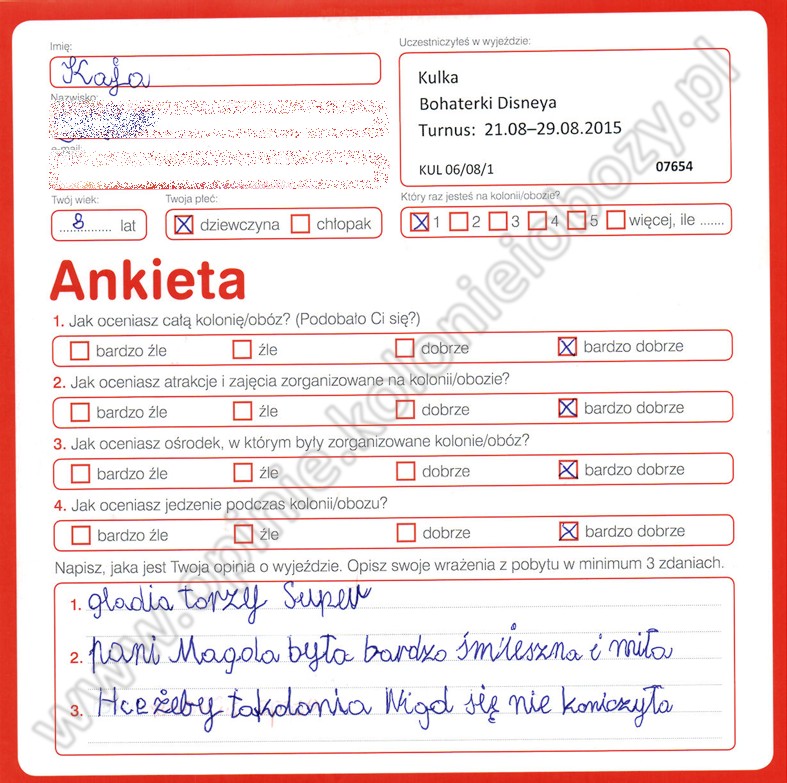 Imię:
Kaja
Uczestniczyłeś w wyjeździe:
Kulka
Bohaterki Disneya
Turnus: 21.08–29.08.2015
KUL 06/08/1 07654
Nazwisko:
e-mail:
Twój wiek:
8 lat
Twoja płeć:
dziewczyna chłopak
Który raz jesteś na kolonii/obozie?
1 2 3 4 5 więcej, ile .......
Ankieta
1. Jak oceniasz całą kolonię/obóz? (Podobało Ci się?)
bardzo źle źle dobrze bardzo dobrze
2. Jak oceniasz atrakcje i zajęcia zorganizowane na kolonii/obozie?
bardzo źle źle dobrze bardzo dobrze
3. Jak oceniasz ośrodek, w którym były zorganizowane kolonie/obóz?
bardzo źle źle dobrze bardzo dobrze
4. Jak oceniasz jedzenie podczas kolonii/obozu?
bardzo źle źle dobrze bardzo dobrze
Napisz, jaka jest Twoja opinia o wyjeździe. Opisz swoje wrażenia z pobytu w minimum 3 zdaniach.
1. gladia torzy Super
2. pani Magda była bardzo śmieszna i miła
3. Hce żeby takdonia Nigd się nie koniczyła
www.opinie.kolonieiobozy.pl